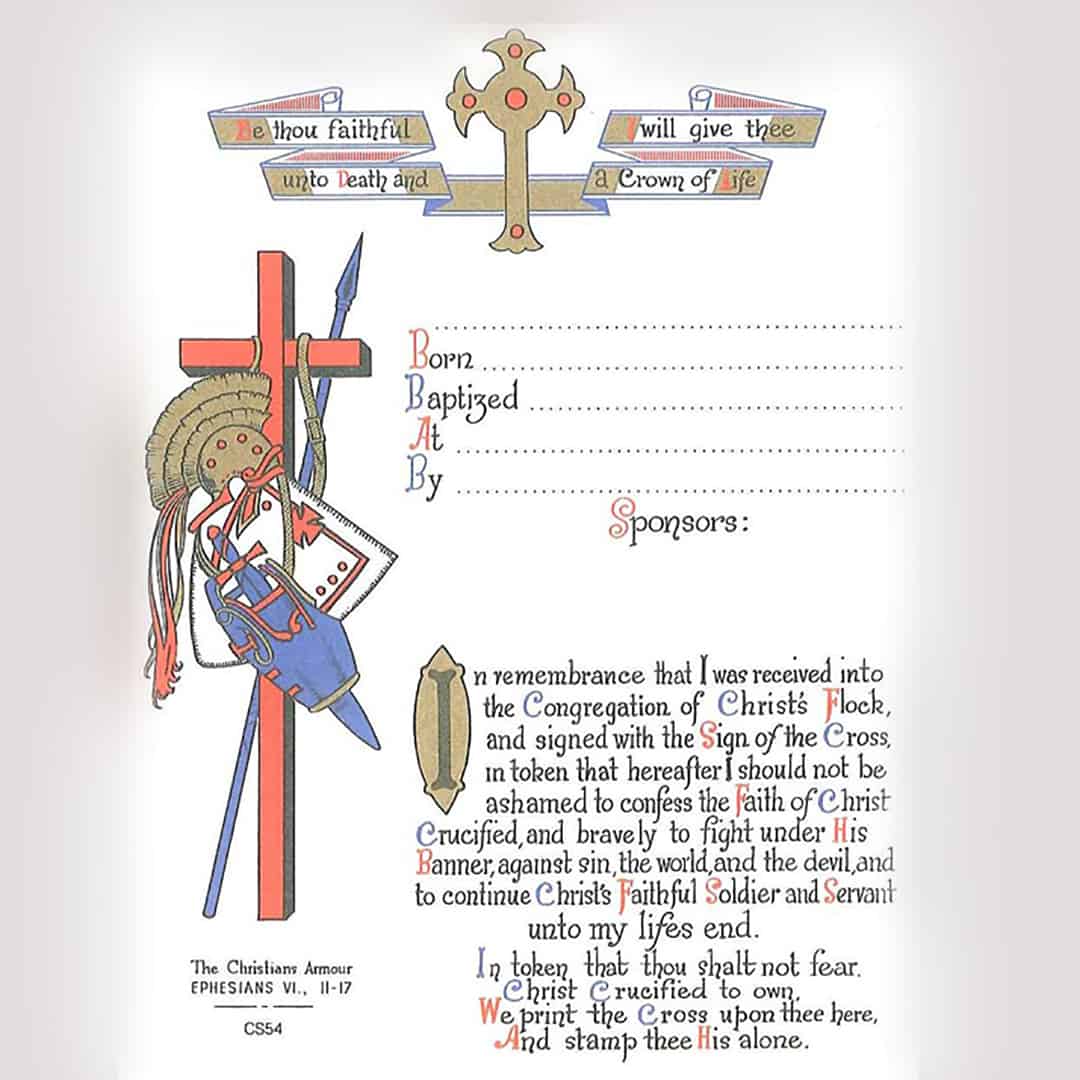 Be thou faithful
unto Death and
I will give thee
a Crown of Life
Born
Baptized
At
By
Sponsors:
In remembrance that I was received into
the Congregation of Christ's Flock,
and signed with the Sign of the Cross,
in token that hereafter I should not be
ashamed to confess the Faith of Christ
Crucified, and bravely to fight under His
Banner, against sin, the world, and the devil, and
to continue Christ's Faithful Soldier and Servant
unto my lifes end.
In token that thou shalt not fear.
Christ Crucified to own,
We print the Cross upon thee here,
And stamp thee His alone.
The Christians Armour
EPHESIANS VI., 11-17
CS54